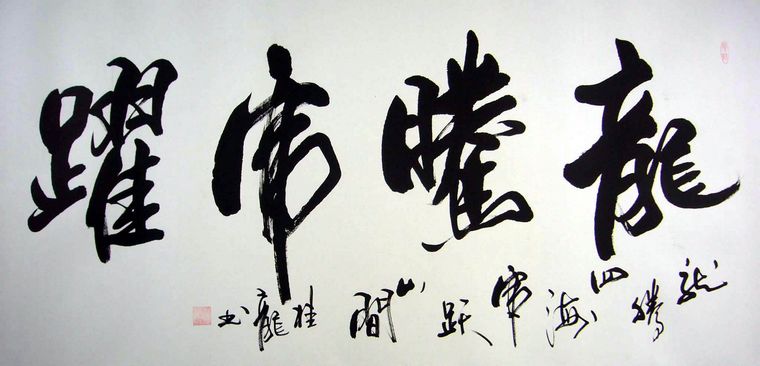 龍騰虎躍
龙腾四海虎跃山間 桂龍书